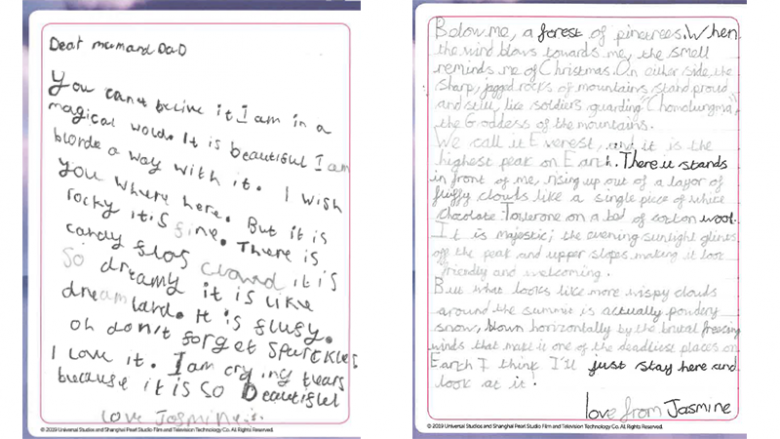 Dear mum and DaD
You cant belive it I am in a
magical world. It is beautiful I am
blorde a way with it. I wish
you where here. But it is
rocky it is fine. There is
candy flos clowd it is
So dreamy it is like
dream land. It is flufy.
oh don't forget sparckles
I love it. I am crying tears
because it is so beautiful
love Jasmine
© 2019 Universal Studios and Shanghai Pearl Studio Film and Television Technology Co. All Rights Reserved.
Below me, a forest of pinetrees. When
the wind blows towards me, the smell
reminds me of Christmas. On either side, the
sharp, jagged rocks of mountains stand proud
and still, like soldiers guarding "Chomolungma",
the Goddess of the mountains.
We call it Everest, and it is the
highest peak on Earth. There it stands
in front of me, rising up out of a layor of
fluffy clouds like a single piece of white
chocolate Toblerone on a bed of cotton wool.
It is majestic; the evening sunlight glints
off the peak and upper slopes making it look
friendly and welcoming.
But what looks like more wispy clouds
around the summit is actually powdery
snow, blown horizontally by the brutal freezing
winds that make it one of the deadliest places on
Earth I think I'll just stay here and
look at it.
love from Jasmine
© 2019 Universal Studios and Shanghai Pearl Studio Film and Television Technology Co. All Rights Reserved.